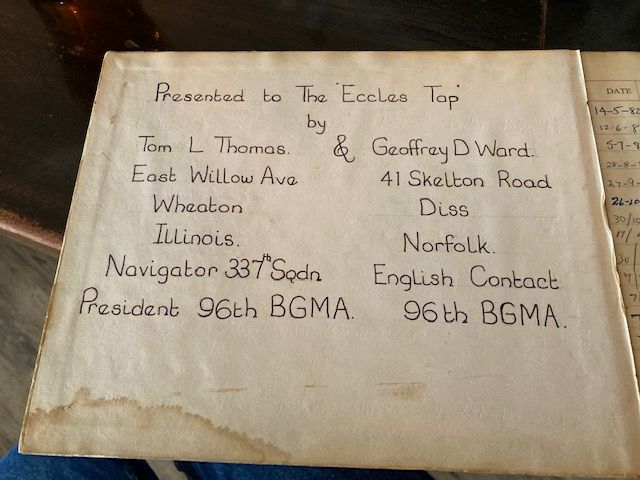 Presented to The 'Eccles Tap'
by
Tom L Thomas. & Geoffrey D Ward.
East Willow Ave 41 Skelton Road
Wheaton Diss
Illinois. Norfolk.
Navigator 337th Sqdn English Contact
President 96th BGMA. 96th BGMA.
DATE
14-5-82
12-6-8
5-7-8
28-8-
27-9-
26-10
30/10
17/
30/